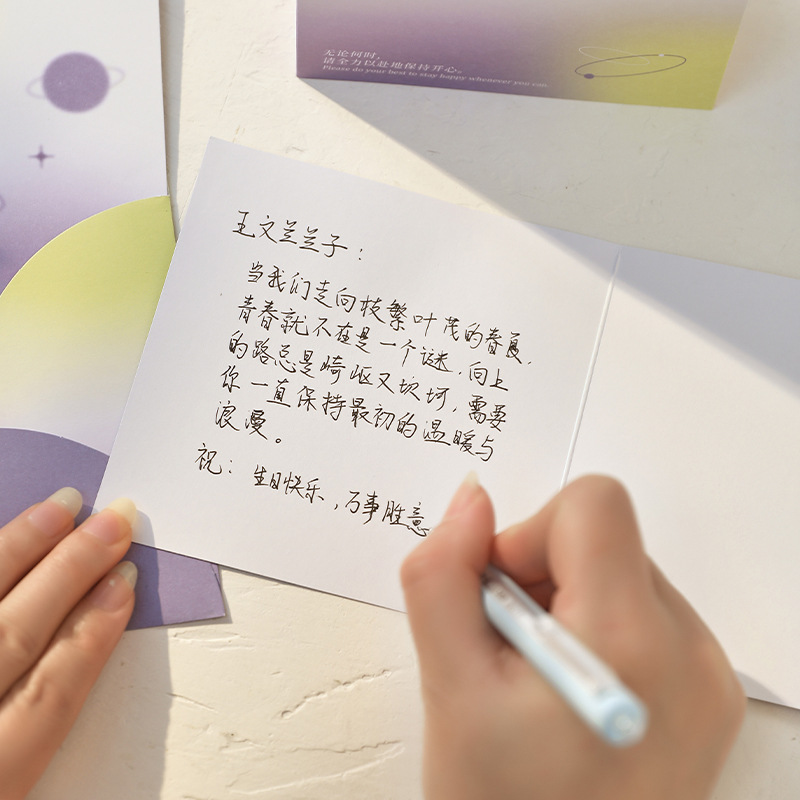 无论何时,
请全力以赴地保持开心。
Please do your best to stay happy whenever you can.
王文兰兰子：
当我们走向枝繁叶茂的春夏,
青春就不在是一个谜.向上
的路总是崎岖又坎坷,需要
你一直保持最初的温暖与
浪漫。
祝：生日快乐,万事胜意